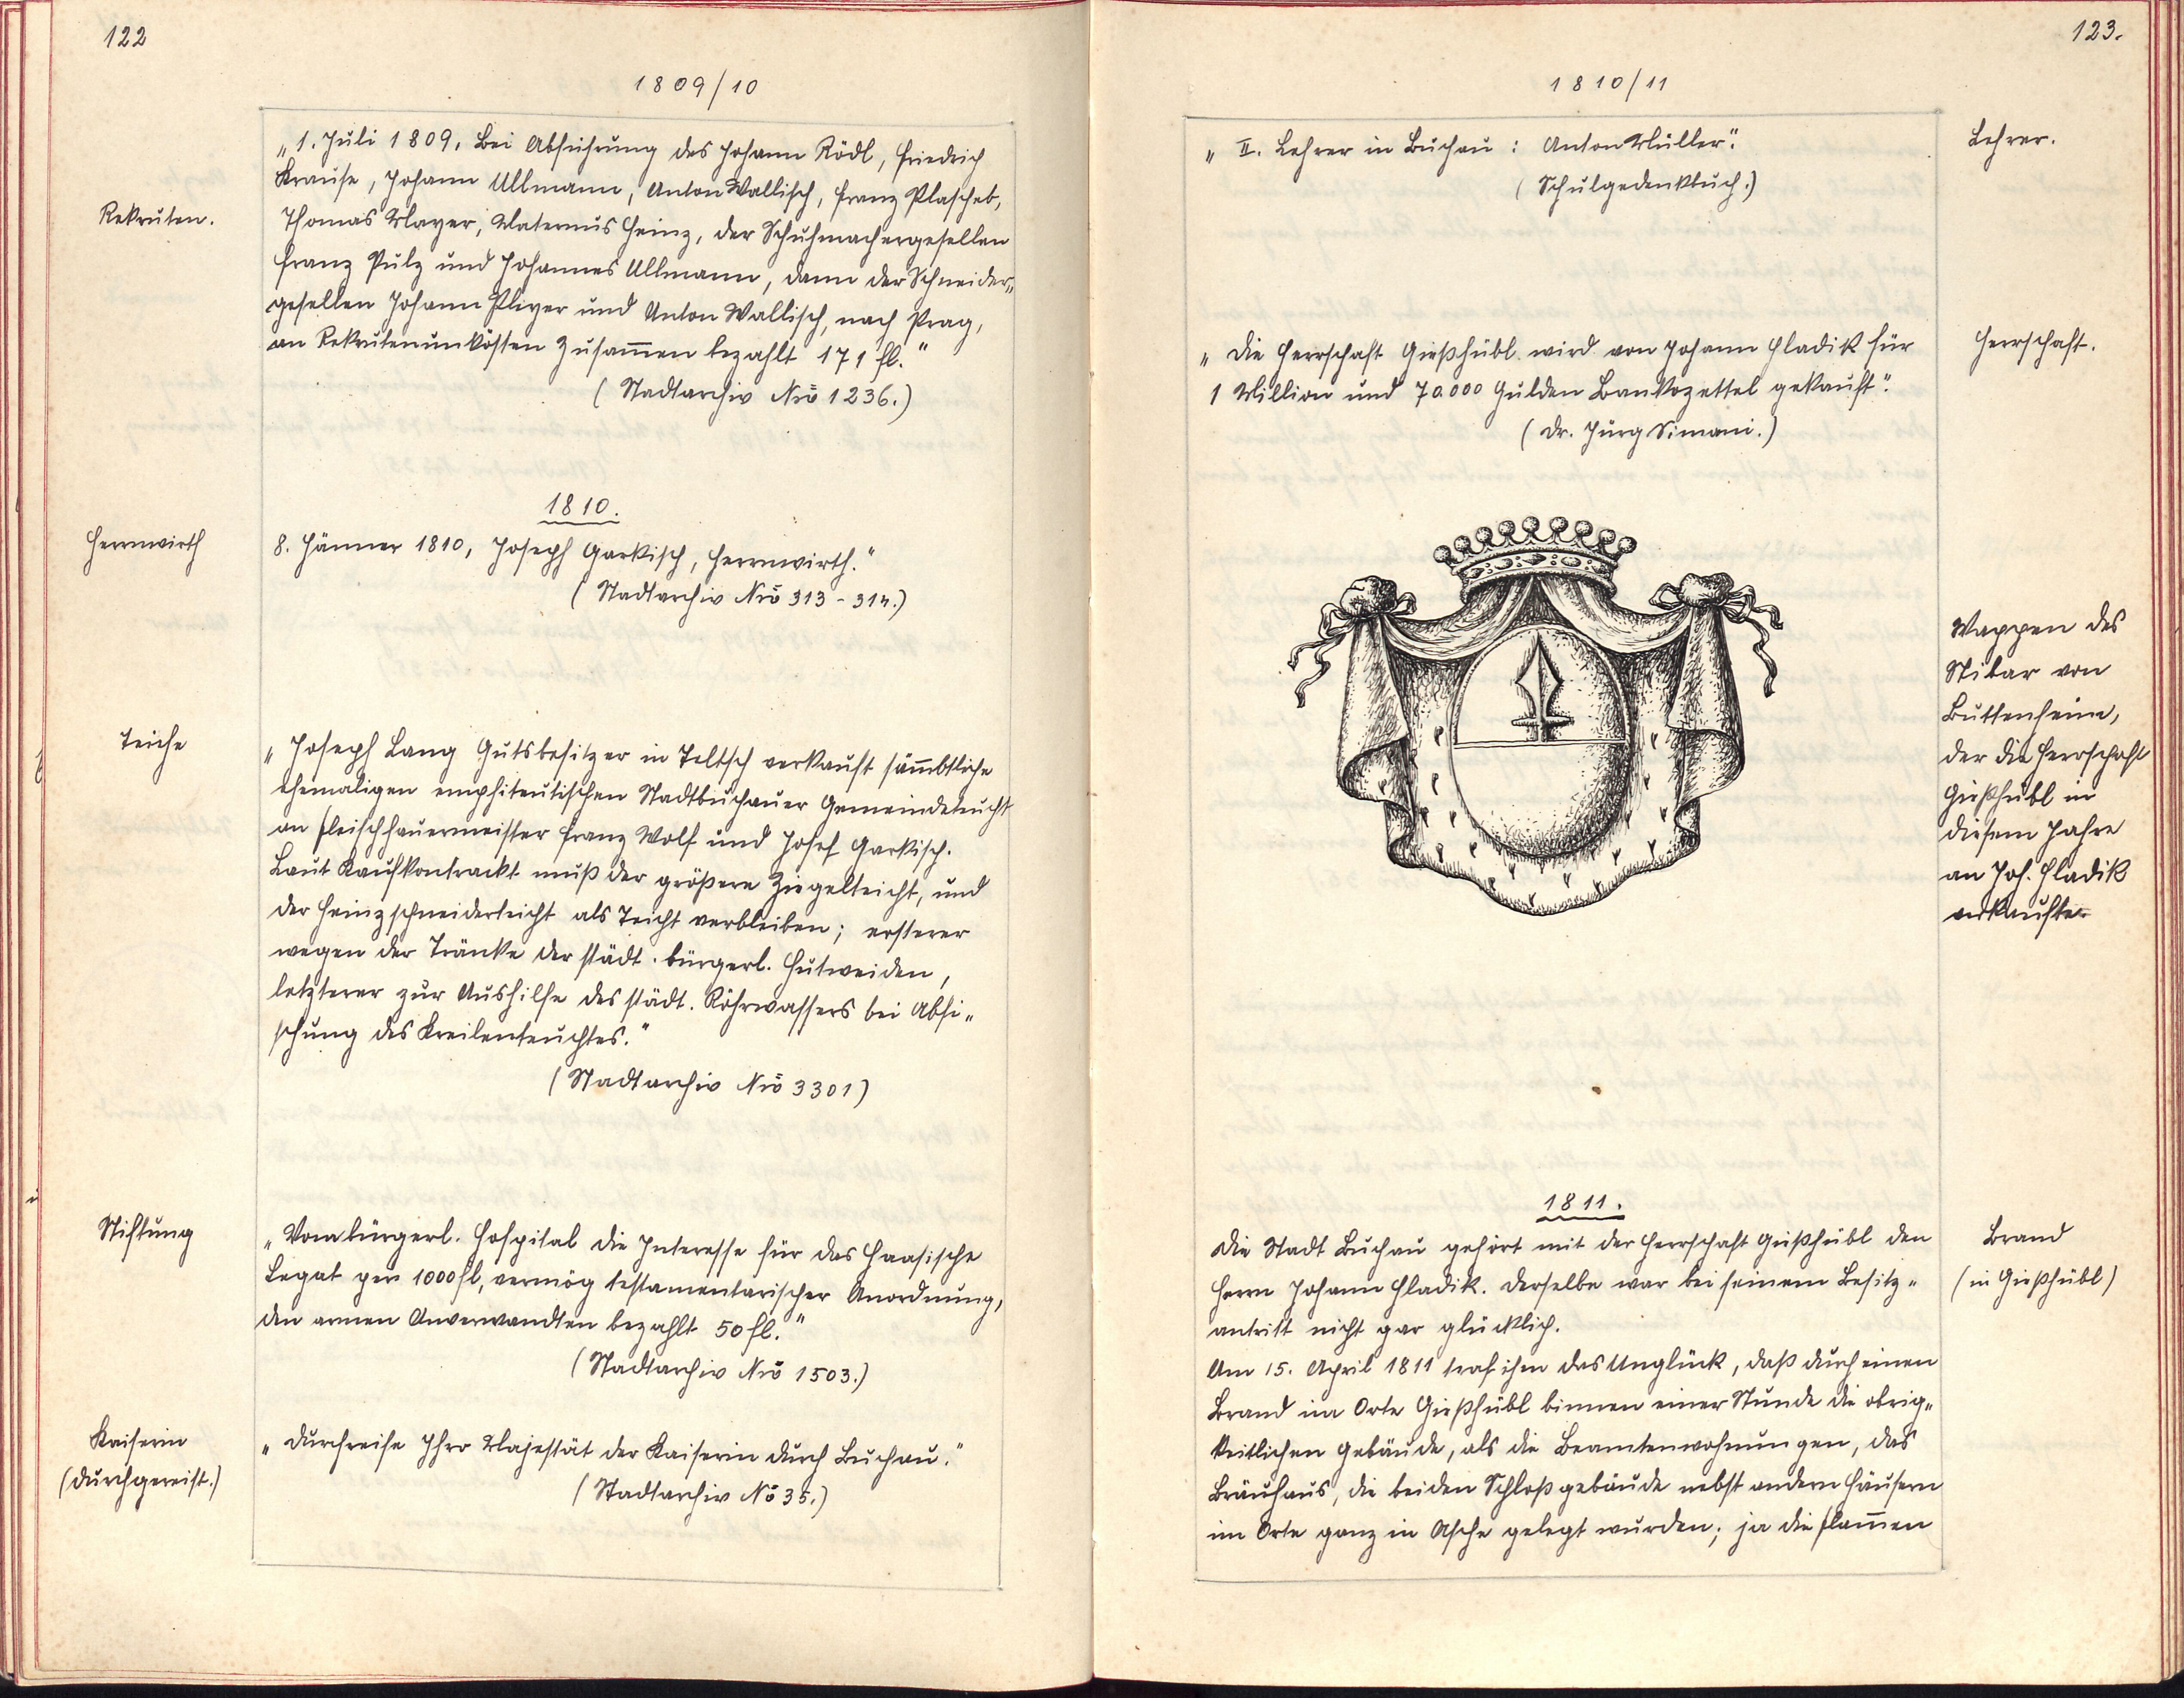 122
1809/10
Rekruten.
„1. Juli 1809. Bei Abführung des Johann Rödl, Friedrich
Krause, Johann Ullmann, Anton Wallisch, Franz Plascheb,
Thomas Mayer, Maternus Heinz, der Schuhmachergesellen
Franz Pulz und Johannes Ullmann, dann der Schneider„
gesellen Johann Pleyer und Anton Wallisch, nach Prag,
an Rekrutenunkösten zusam̄en bezahlt 171 fl.“
(Stadtarchiv Nro 1236.)
1810.
Herrnwirth
8. Jänner 1810, Joseph Garkisch, Herrnwirth.“
(Stadtarchiv Nro 313 - 314.)
Teiche
„Joseph Lang Gutsbesitzer in Teltsch verkauft säm̄btliche
ehemaligen emphiteutischen Stadtbuchauer Gemeindeteucht
an Fleischhauermeister Franz Wolf und Josef Garkisch.
Laut Kaufkontrackt muß der größere Ziegelteicht, und
der Heinzschneiderteicht als Teicht verbleiben; ersterer
wegen der Tränke der städt. bürgerl. Hutweiden,
letzterer zur Aushilfe des städt. Röhrwassers bei Abfi„
schung des Kreilenteuchtes.“
(Stadtarchiv Nro 3301)
Stiftung
„Vom bürgerl. Hospital die Interesse für das Haasische
Legat per 1000 fl, vermög testamentarischer Anordnung,
den armen Anverwandten bezahlt 50 fl.“
(Stadtarchiv Nro 1503.)
Kaiserin
(durchgereist.)
„Durchreise Ihro Majestät der Kaiserin durch Buchau.“
(Stadtarchiv No 35.)
123.
1810/11
„II. Lehrer in Buchau: Anton Müller“.
(Schulgedenkbuch.)
Lehrer.
„Die Herrschaft Gießhübl wird von Johann Hladik für
1 Million und 70.000 Gulden Bankozettel gekauft“.
(Dr. Jurg Simani.)
Herrschaft.
Wappen des
Stibar von
Buttenheim,
der die Herrschaft
Gießhübl in
diesem Jahre
an Joh. Hladik
verkaufte.
1811.
Die Stadt Buchau gehört mit der Herrschaft Gießhübl den
Herrn Johann Hladik. Derselbe war bei seinem Besitz„
antritt nicht gar glücklich.
Am 15. April 1811 traf ihn das Unglück, daß durch einen
Brand im Orte Gießhübl binnen einer Stunde die obrig„
keitlichen Gebäude, als die Beamtenwohnungen, das
Bräuhaus, die beiden Schloßgebäude nebst andern Häusern
im Orte ganz in Asche gelegt wurden; ja die Flam̄en
Brand
(in Gießhübl)